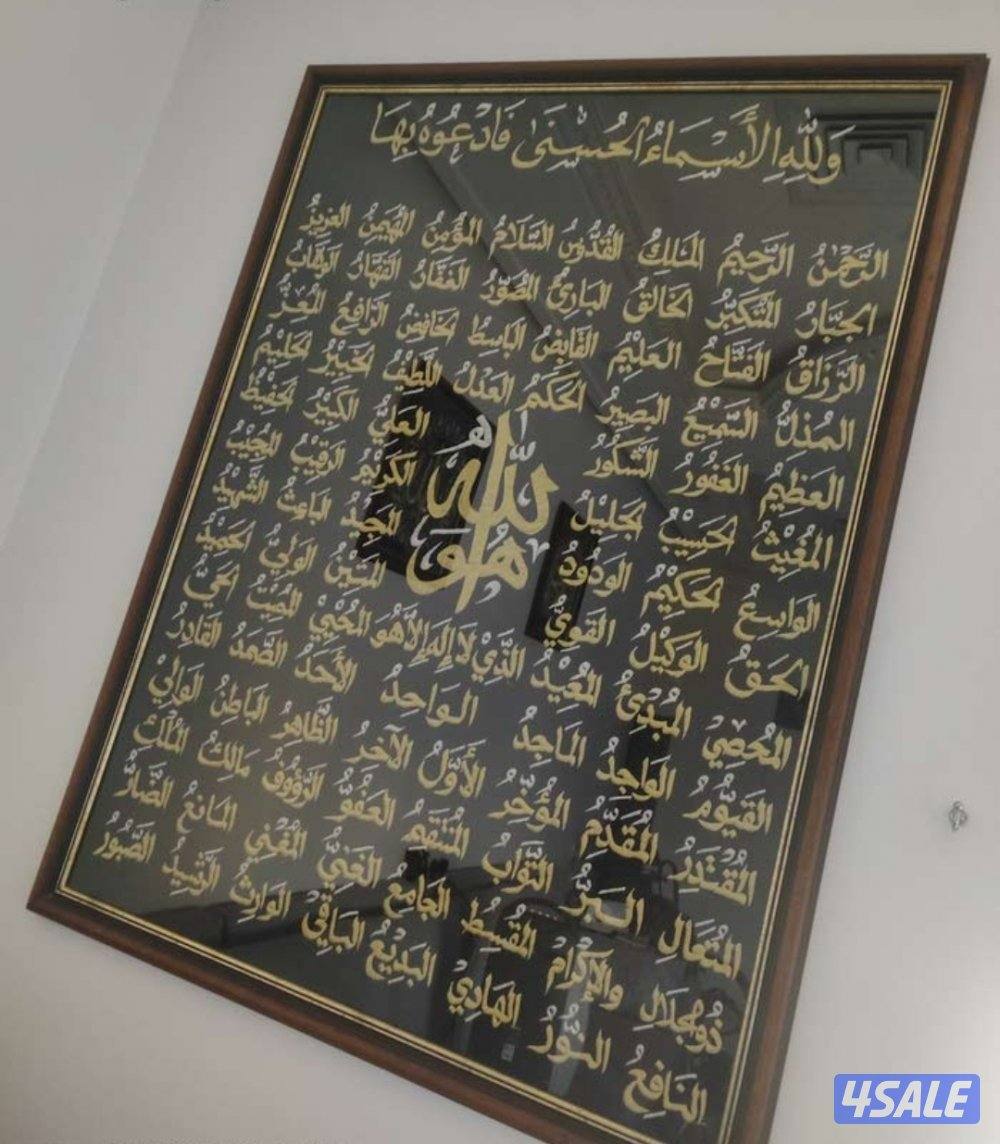 وَلِلَّهِ الأَسْمَاءُ الحُسْنَى فَادْعُوهُ بِهَا
الرَّحْمٰنُ الرَّحِيمُ المَلِكُ القُدُّوسُ السَّلَامُ المُؤْمِنُ المُهَيْمِنُ العَزِيزُ
الجَبَّارُ المُتَكَبِّرُ الخَالِقُ البَارِئُ المُصَوِّرُ الغَفَّارُ القَهَّارُ الوَهَّابُ
الرَّزَاقُ الفَتَّاحُ العَلِيْمُ القَابِضُ البَاسِطُ الخَافِضُ الرَّافِعُ المُعِزُّ
المُذِلُّ السَّمِيْعُ البَصِيرُ الحَكَمُ العَدْلُ اللَّطِيْفُ الخَبِيْرُ الحَلِيْمُ
العَظِيْمُ الغَفُورُ الشَّكُورُ العَلِيُّ الكَبِيْرُ الحَفِيْظُ
المُغِيْثُ الحَسِيْبُ الجَلِيْلُ الكَرِيْمُ الرَّقِيْبُ المُجِيْبُ
الوَاسِعُ الحَكِيْمُ الوَدُودُ المَجِيْدُ البَاعِثُ الشَّهِيْدُ
هُوَ اللّٰهُ
الحَقُّ الوَكِيْلُ القَوِيُّ المَتِيْنُ الوَلِيُّ الحَمِيْدُ
المُحْصِي المُبْدِئُ المُعِيْدُ الَّذِيْ لَا إِلهَ إِلَّا هُوَ المُحْيِيْ المُمِيْتُ الحَيُّ
القَيُّوْمُ الوَاجِدُ المَاجِدُ الوَاحِدُ الأَحَدُ الصَّمَدُ القَادِرُ
المُقْتَدِرُ المُقَدِّمُ المُؤَخِّرُ الأَوَّلُ الآخِرُ الظَّاهِرُ البَاطِنُ الوَالِيْ
المُتَعَالِ البَرُّ التَّوَابُ المُنْتَقِمُ العَفُوُّ الرَّؤُوفُ مَالِكُ المُلْكِ
ذُو الجَلَالِ وَالإِكْرَامْ المُقْسِطُ الجَامِعُ الغَنِيُّ المُغْنِي المَانِعُ الضَّارُّ
النَافِعُ النُّورُ الهَادِيْ البَدِيْعُ البَاقِيْ الوَارِثُ الرَّشِيْدُ الصَّبُورُ
4SALE